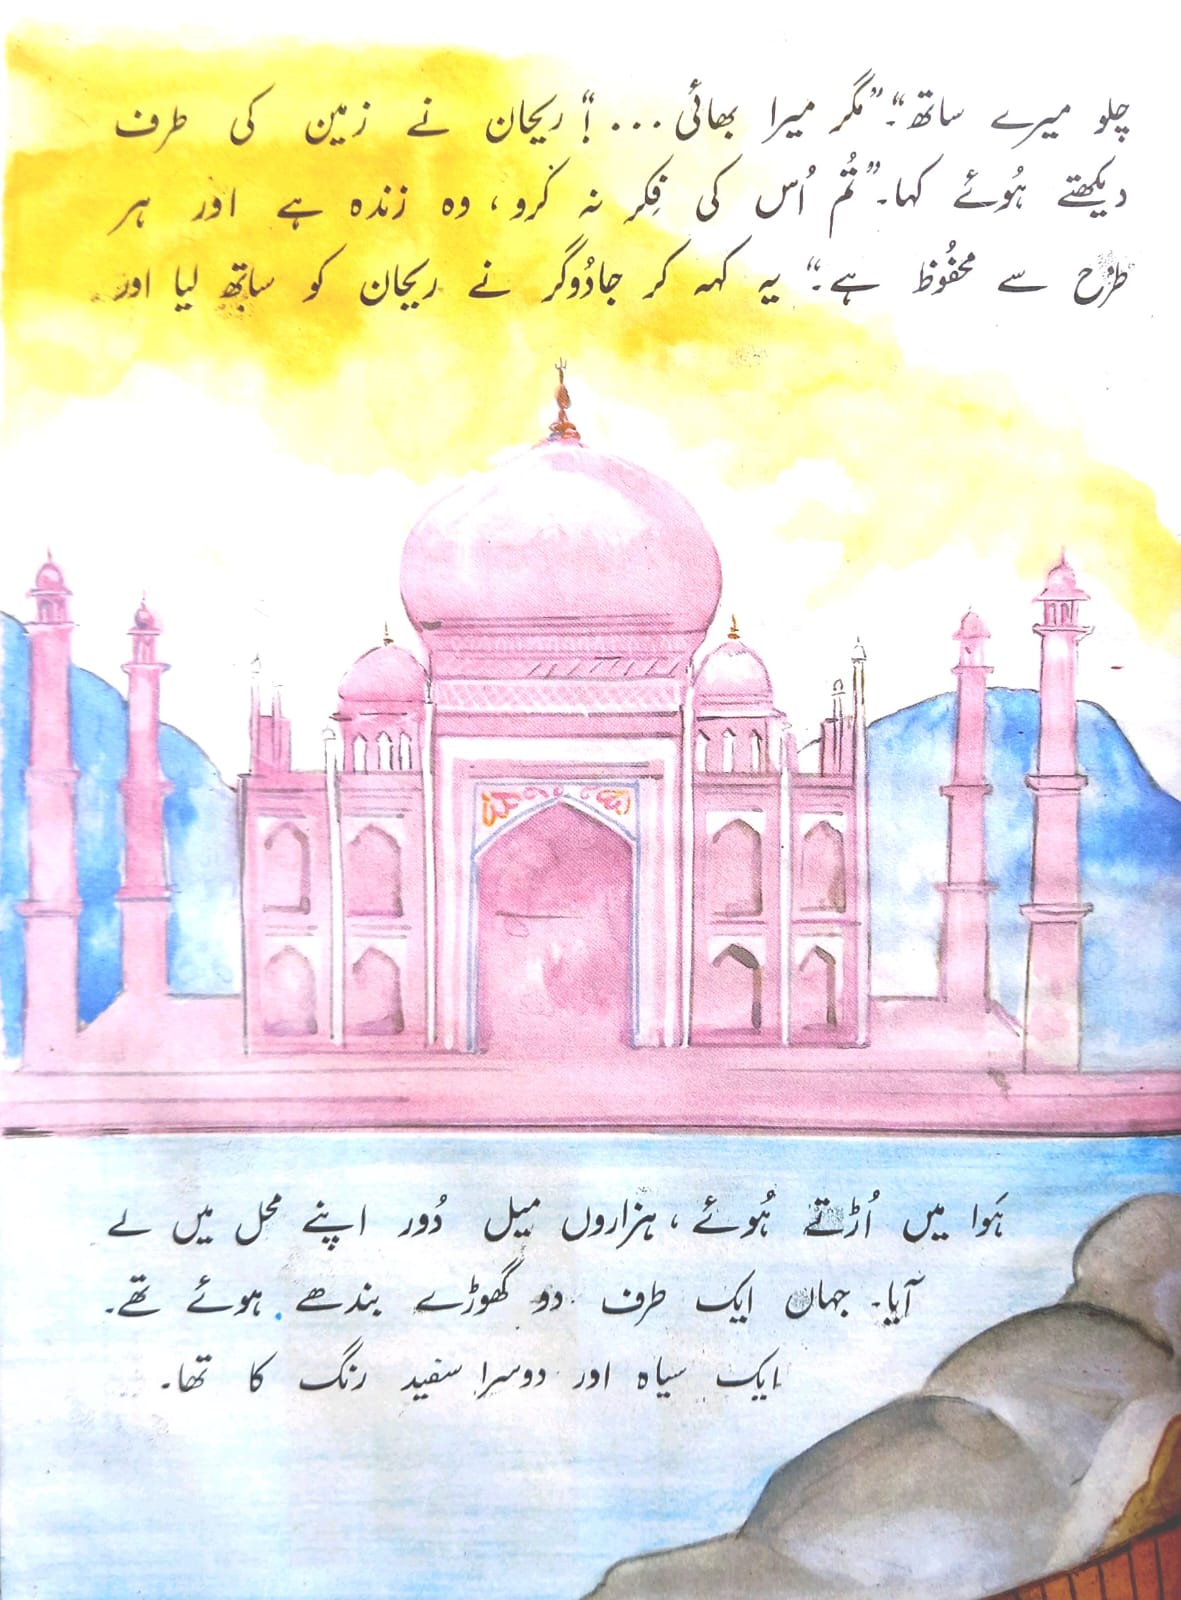 چلو میرے ساتھ۔“ ”مگر میرا بھائی...!“ ریحان نے زمین کی طرف
دیکھتے ہُوئے کہا۔ ”تُم اُس کی فِکر نہ کرو، وہ زندہ ہے اور ہر
طرح سے محفُوظ ہے۔“ یہ کہہ کر جادُوگر نے ریحان کو ساتھ لیا اور
ہَوا میں اُڑتے ہُوئے، ہزاروں میل دُور اپنے محل میں لے
آیا۔ جہاں ایک طرف دو گھوڑے بندھے ہوئے تھے۔
ایک سیاہ اور دوسرا سفید رنگ کا تھا۔